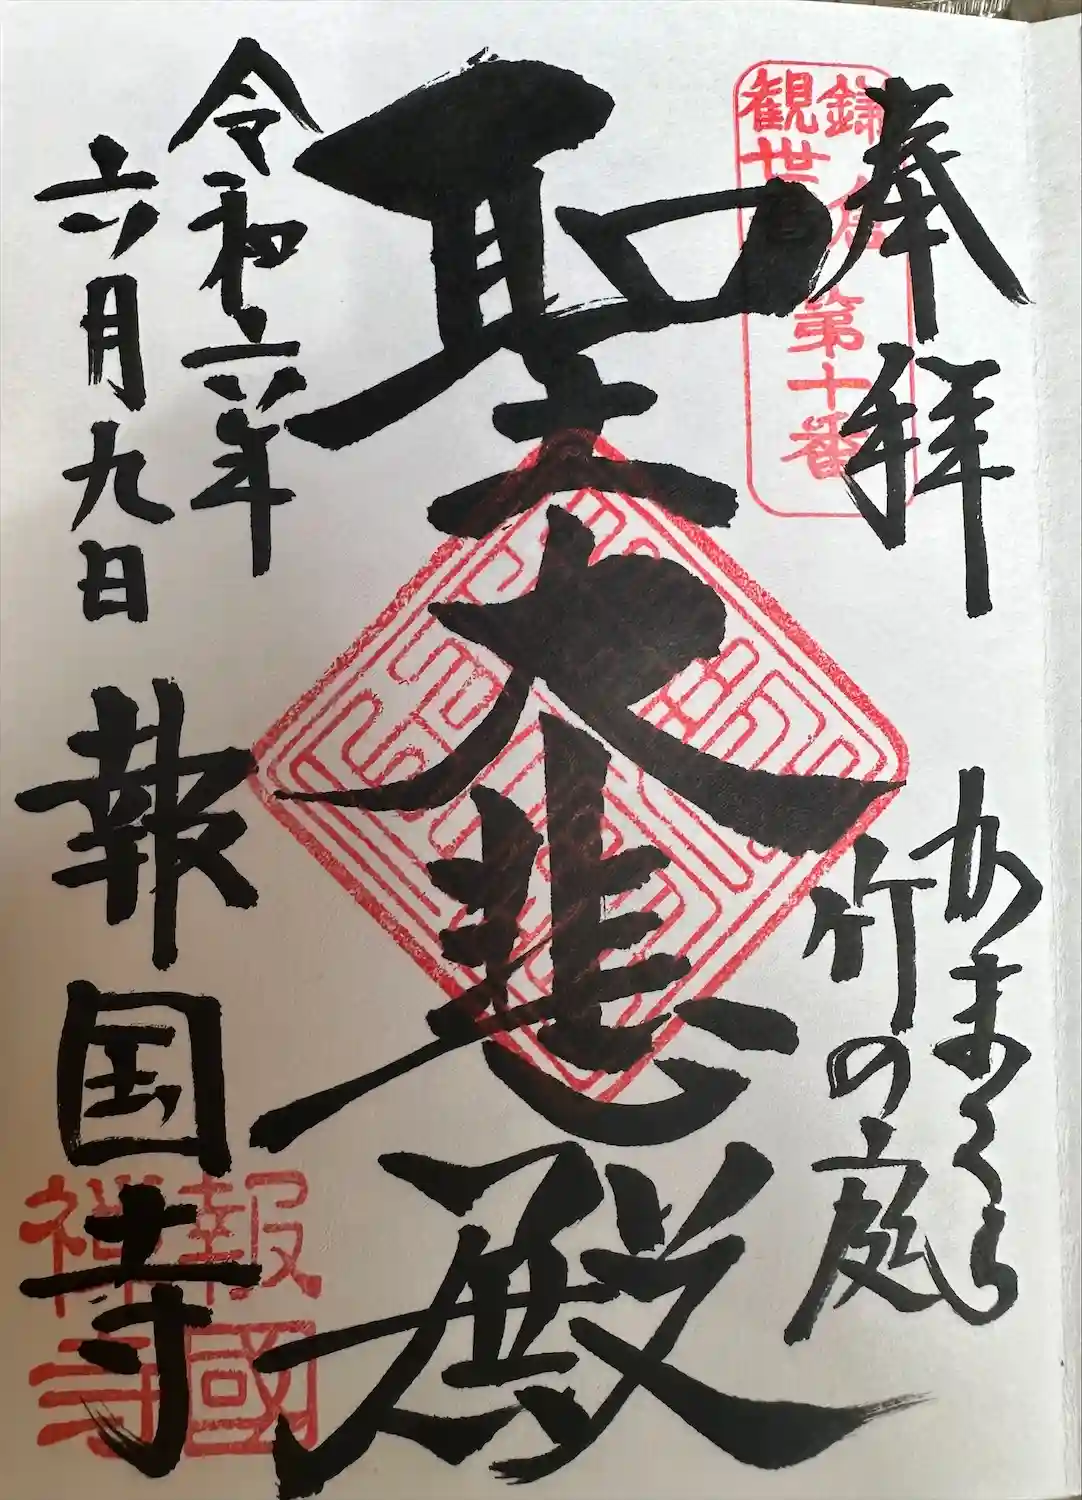 奉拝
鎌倉
観世音
第十番
かまくら
竹の庭
聖大悲殿
令和六年
六月九日
報国寺
報國
禅寺